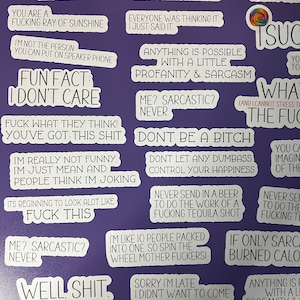 YOU ARE A
FUCKING RAY OF SUNSHINE
I'M NOT THE PERSON
YOU CAN PUT ON SPEAKER PHONE
FUN FACT
I DON'T CARE
FUCK WHAT THEY THINK
YOU'VE GOT THIS SHIT
IM REALLY NOT FUNNY.
IM JUST MEAN AND
PEOPLE THINK IM JOKING
IT'S BEGINNING TO LOOK ALOT LIKE
FUCK THIS
ME? SARCASTIC?
NEVER
WELL SHIT
EVERYONE WAS THINKING IT
I JUST SAID IT
ANYTHING IS POSSIBLE
WITH A LITTLE
PROFANITY & SARCASM
ME? SARCASTIC?
NEVER
DONT BE A BITCH
DONT LET ANY DUMBASS
CONTROL YOUR HAPPINESS
NEVER SEND IN A BEER
TO DO THE WORK OF A
FUCKING TEQUILA SHOT
I'M LIKE 10 PEOPLE PACKED
INTO ONE SO SPIN THE
WHEEL MOTHER FUCKERS!
SORRY I'M LATE
I DIDN'T WANT TO COME
I SUC
YOU
TO
WHA
(AND I CANNOT STRESS
THE FUC
YOU CA
IMAGIN
OF TH
NEVER SE
TO DO TH
FUCKING
IF ONLY SARC
BURNED CALO
ANYTHING IS
WITH A L